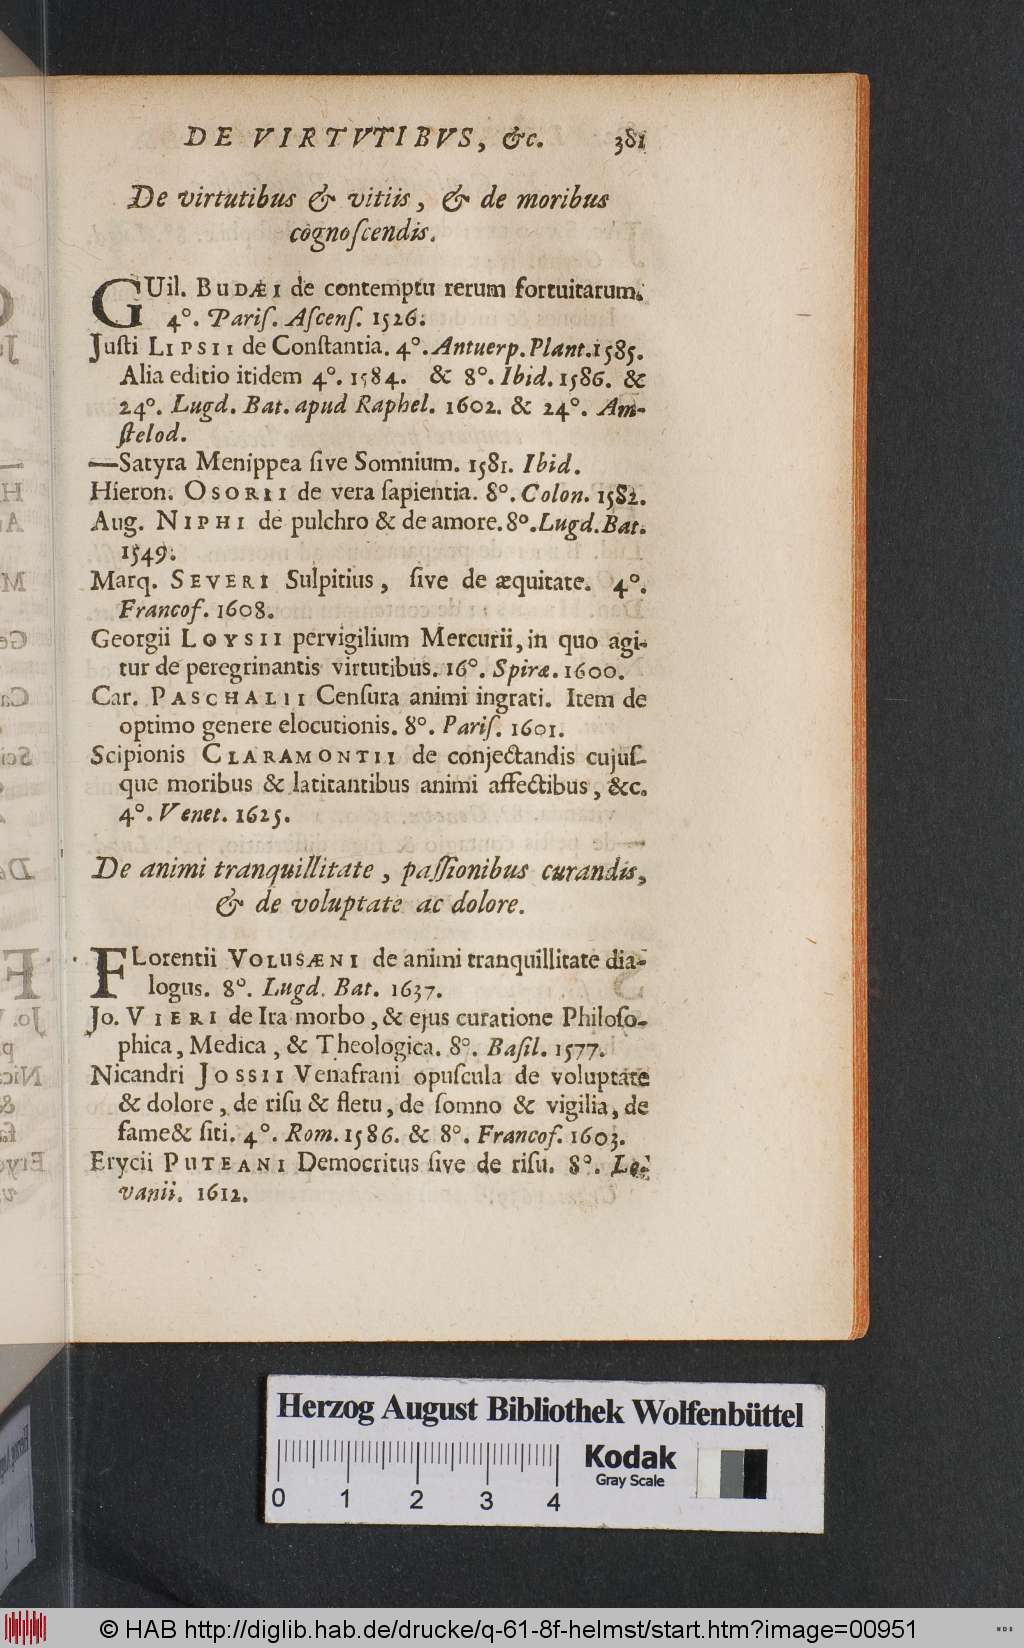 DE VIRTVTIBVS, &c. 381
De virtutibus & vitiis, & de moribus
cognoſcendis.
GUil. BUDÆI de contemptu rerum fortuitarum.
4°. Pariſ. Aſcenſ. 1526.
Juſti LIPSII de Conſtantia. 4°. Antuerp. Plant. 1585.
Alia editio itidem 4°. 1584. & 8°. Ibid. 1586. &
24°. Lugd. Bat. apud Raphel. 1602. & 24°. Am-
ſtelod.
—Satyra Menippea ſive Somnium. 1581. Ibid.
Hieron. OSORII de vera ſapientia. 8°. Colon. 1582.
Aug. NIPHI de pulchro & de amore. 8°. Lugd. Bat.
1549.
Marq. SEVERI Sulpitius, ſive de æquitate. 4°.
Francof. 1608.
Georgii LOYSII pervigilium Mercurii, in quo agi-
tur de peregrinantis virtutibus. 16°. Spiræ. 1600.
Car. PASCHALII Cenſura animi ingrati. Item de
optimo genere elocutionis. 8°. Pariſ. 1601.
Scipionis CLARAMONTII de conjectandis cujuſ-
que moribus & latitantibus animi affectibus, &c.
4°. Venet. 1625.
De animi tranquillitate, paſſionibus curandis,
& de voluptate ac dolore.
FLorentii VOLUSÆNI de animi tranquillitate dia-
logus. 8°. Lugd. Bat. 1637.
Jo. VIERI de Ira morbo, & ejus curatione Philoſo-
phica, Medica, & Theologica. 8°. Baſil. 1577.
Nicandri JOSSII Venafrani opuſcula de voluptate
& dolore, de riſu & fletu, de ſomno & vigilia, de
fame & ſiti. 4°. Rom. 1586. & 8°. Francof. 1603.
Erycii PUTEANI Democritus ſive de riſu. 8°. Lo-
vanii. 1612.
Herzog August Bibliothek Wolfenbüttel
Kodak
Gray Scale
0 1 2 3 4
© HAB http://diglib.hab.de/drucke/q-61-8f-helmst/start.htm?image=00951